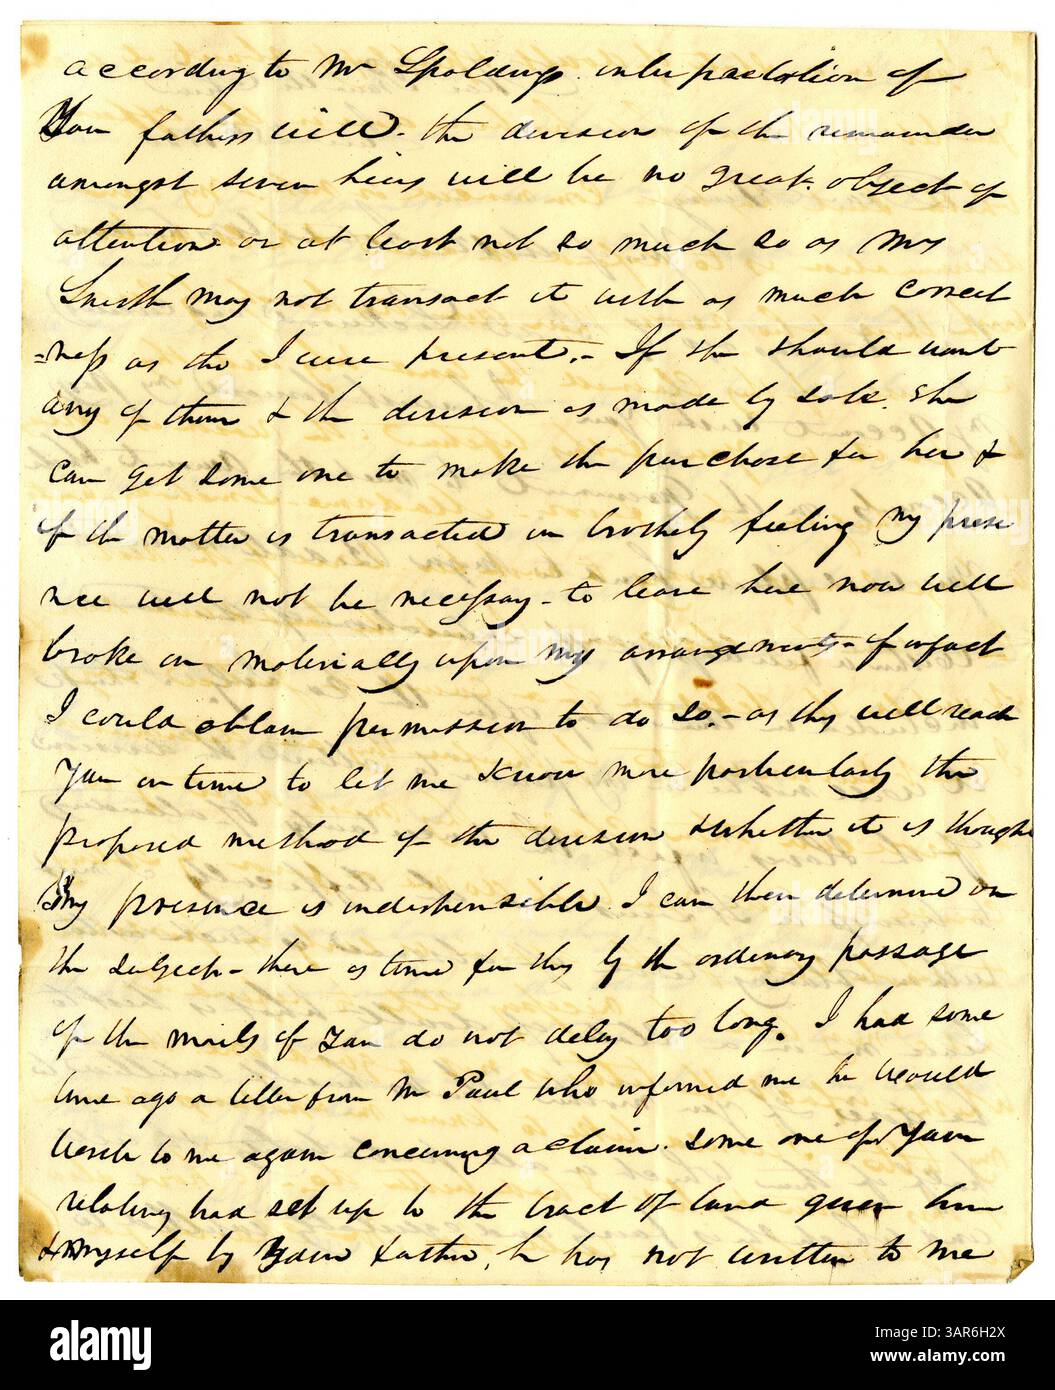 according to Mr Spaldings interpretation of
Your fathers will - the division of the remainder
amongst seven heirs will be no great object of
attention or at least not so much so as Mrs
Smith may not transact it with as much correct
=ness as tho I were present. - If she should want
any of them & the division is made by sale. she
can get some one to make the purchase for her &
if the matter is transacted in brotherly feeling my prese
nce will not be necessary - to leave here now will
broke in materially upon my arrangements - if infact
I could obtain permission to do so. - as this will reach
You in time to let me know more particularly the
proposed method of the division & whether it is thought
my presence is indispensible. I can then determine on
the subject - there is time for this by the ordinary passage
of the mails if You do not delay too long. I had some
time ago a letter from Mr Paul who informed me he would
write to me again concerning a claim. some one of Your
relations had set up to the tract of land given him
& myself by Your father, he has not written to me
alamy
Image ID: 3AR6H2X
www.alamy.com